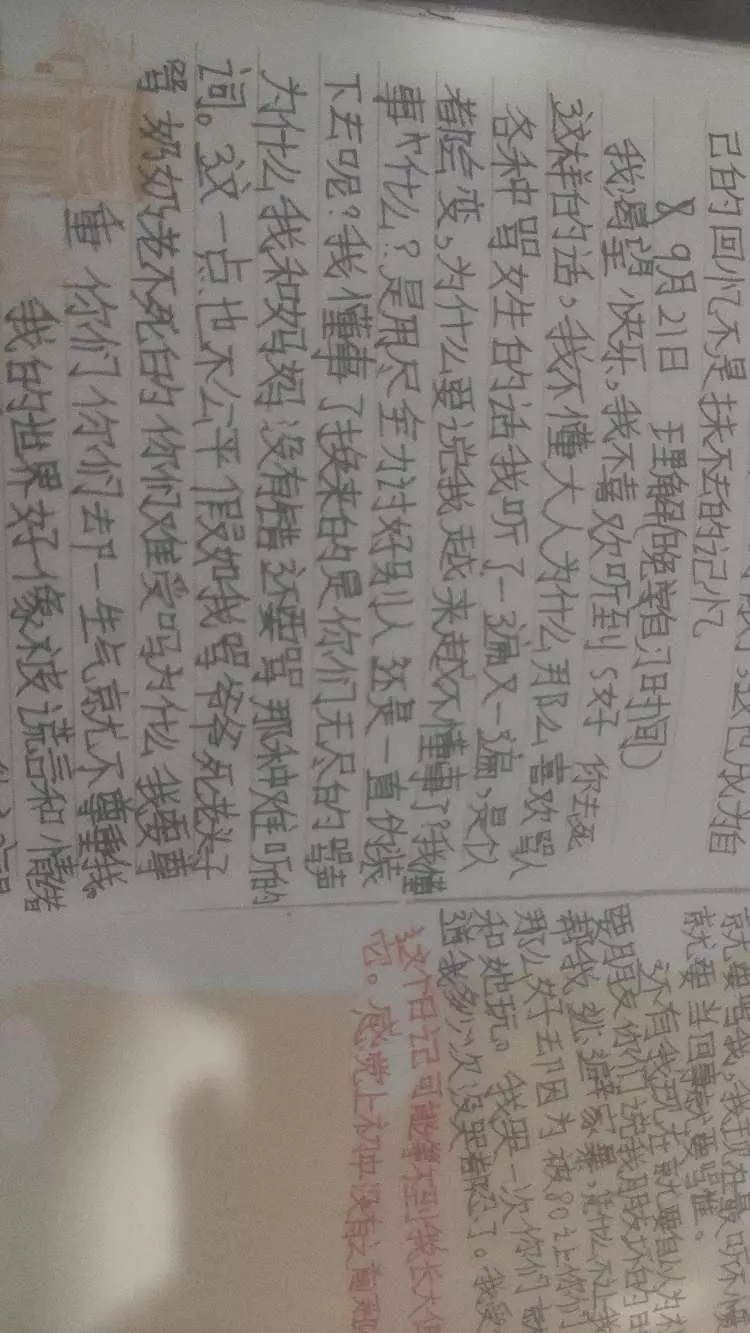 己的回忆不是抹不去的记忆
9月21日 理解(晚学自习时间)
我渴望快乐,我不喜欢听到
你去死
这样的话,我不懂大人为什么那么喜欢骂人
各种骂女生的话我听了一遍又一遍,是仪
着啥变,为什么要说我越来越不懂事了?我懂
事什么?是用尽全力讨好别人还是一直伪装
下去呢?我懂事了换来的是你们无尽的骂声
为什么我和妈妈没有错还要骂那种难听的
词。这一点也不公平假如我骂爷爷死老头子
骂奶奶老不死的你们难受吗为什么我要尊
重你们你们却一生气就不尊重我。
我的世界好像被谎言和情绪
就要骂我,我现在最听不惯
就要当回事就要骂谁。
还有我现在就要自以为
要朋友你们说我朋友坏的
都我逃避家暴,凭什么不让我
那么好却因为被80让你们
和她玩。我哭一次你们就
道我多少次没哭都忍了。我受
这个日记可能等到我长大
它。感觉上初中没有之前